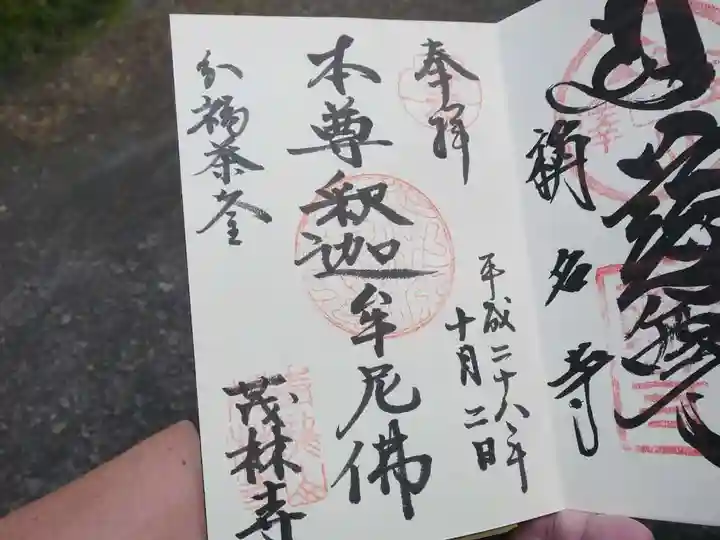 稱名寺
奉拝
平成二十八年
十月二日
本尊釈迦牟尼佛
分福茶釜
茂林寺